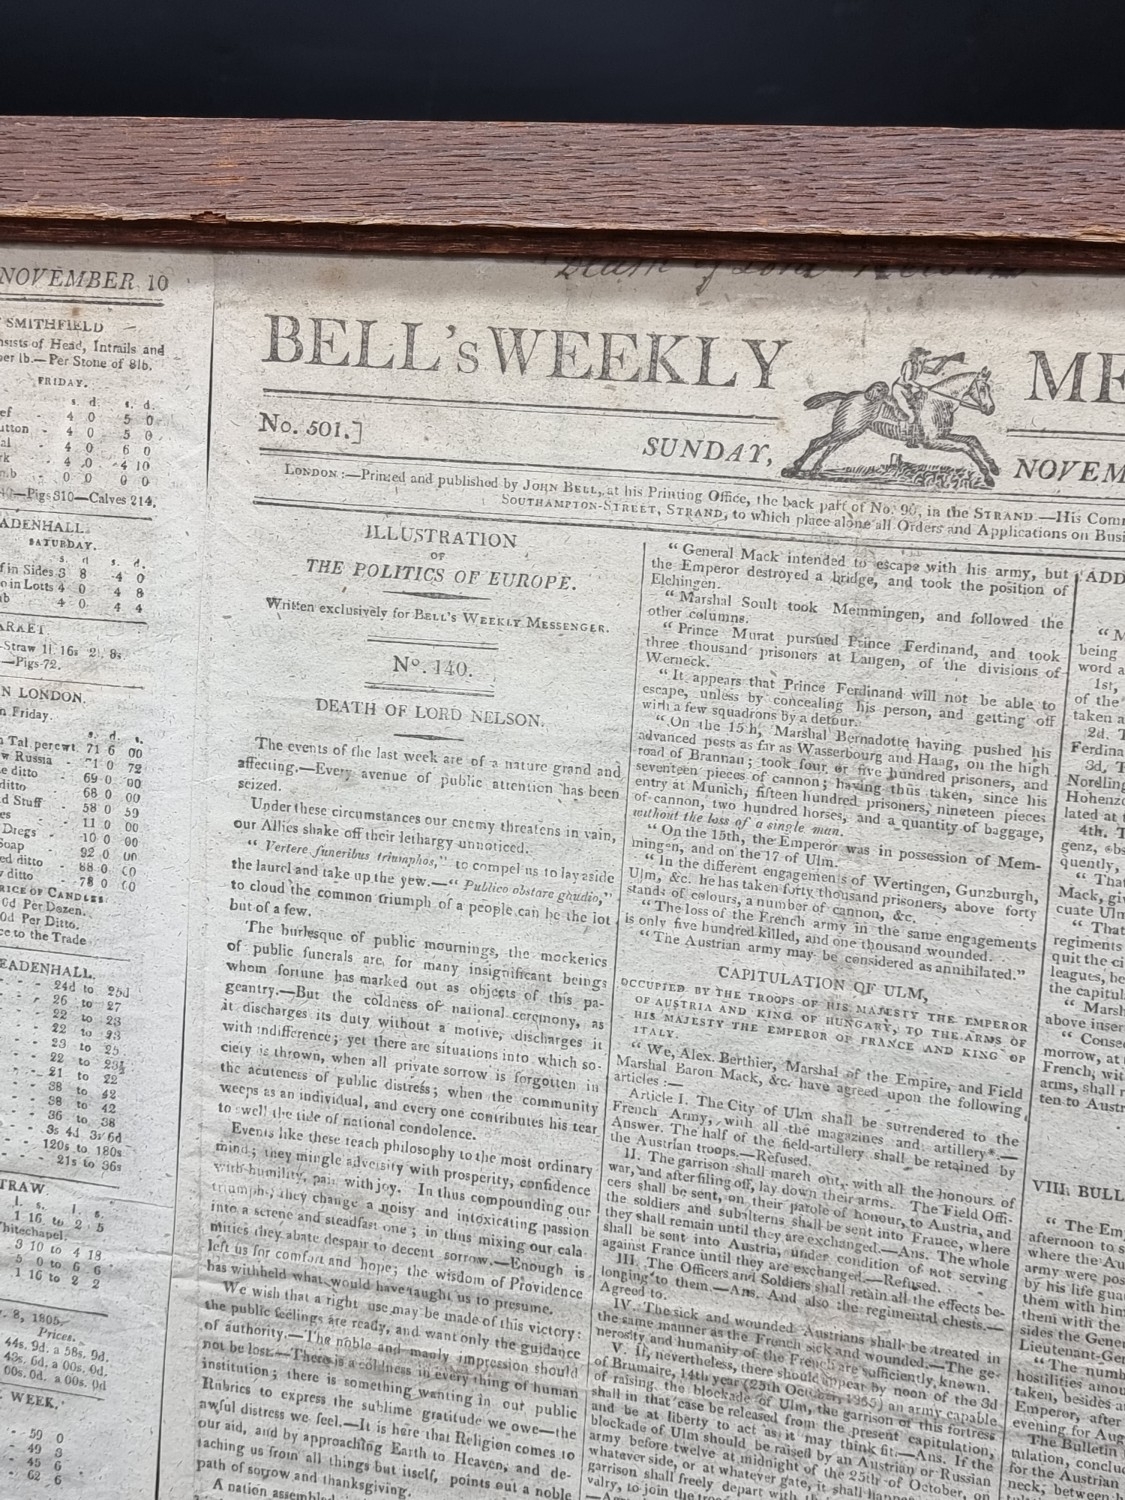 Death of Lord Nelson
NOVEMBER 10
SMITHFIELD
nsists of Head, Intrails and
per lb.—Per Stone of 8lb.
FRIDAY.
s. d. s. d.
ef - 4 0 5 0
utton - 4 0 5 0
al - 4 0 6 0
rk - 4 0 4 10
mb - 0 0 0 0
—Pigs 310—Calves 214.
EADENHALL.
SATURDAY.
s. d. s. d.
f in Sides 3 8 4 0
o in Lotts 4 0 4 8
b 4 0 4 4
ARKET
Straw 1l 16s 2l. 8s.
—Pigs 72.
N LONDON.
n Friday.
s. d. s.
n Tal percwt. 71 6 00
w Russia - 71 0 72
e ditto - 69 0 00
ditto - 68 0 00
d Stuff - 58 0 59
es - 11 0 00
Dregs - 10 0 00
Soap - 92 0 00
ed ditto - 88 0 00
y ditto - 78 0 00
PRICE OF CANDLES
0d Per Dozen.
0d Per Ditto.
ce to the Trade
EADENHALL.
- - - 24d to 25d
- - - 26 to 27
- - - 22 to 23
- - - 22 to 23
- - - 23 to 25
- - - 22 to 23½
- - - 21 to 22
- - - 38 to 42
- - - 38 to 42
- - - 36 to 38
- - - 3s 4d 3s 6d
- - - 120s to 180s
- - - 21s to 36s
TRAW.
l. s. l. s.
1 16 to 2 5
hitechapel.
3 10 to 4 18
5 0 to 6 6
1 16 to 2 2
8, 1805.
Prices.
44s. 9d. a 58s. 9d.
43s. 6d. a 00s. 0d.
60s. 0d. a 00s. 0d
WEEK,
- 50 0
- 49 3
- 45 6
- 62 6
BELL's WEEKLY ME
No. 501.]
SUNDAY, NOVEM
LONDON:—Printed and published by JOHN BELL, at his Printing Office, the back part of No. 90, in the STRAND.—His Com
SOUTHAMPTON-STREET, STRAND, to which place alone all Orders and Applications on Busi
ILLUSTRATION
OF
THE POLITICS OF EUROPE.
Written exclusively for BELL'S WEEKLY MESSENGER.
No. 140.
DEATH OF LORD NELSON.
The events of the last week are of a nature grand and
affecting.—Every avenue of public attention has been
seized.
Under these circumstances our enemy threatens in vain,
our Allies shake off their lethargy unnoticed.
"Vertere funeribus triumphos," to compel us to lay aside
the laurel and take up the yew.—"Publico obstare gaudio,"
to cloud the common triumph of a people can be the lot
but of a few.
The burlesque of public mournings, the mockeries
of public funerals are, for many insignificant beings
whom fortune has marked out as objects of this pa-
geantry.—But the coldness of national ceremony, as
it discharges its duty without a motive, discharges it
with indifference; yet there are situations into which so-
ciety is thrown, when all private sorrow is forgotten in
the acuteness of public distress; when the community
weeps as an individual, and every one contributes his tear
to swell the tide of national condolence.
Events like these teach philosophy to the most ordinary
mind; they mingle adversity with prosperity, confidence
with humility, pain with joy. In thus compounding our
triumph, they change a noisy and intoxicating passion
into a serene and steadfast one; in thus mixing our cala-
mities they abate despair to decent sorrow.—Enough is
left us for comfort and hope; the wisdom of Providence
has withheld what would have taught us to presume.
We wish that a right use may be made of this victory:
the public feelings are ready, and want only the guidance
of authority.—The noble and manly impression should
not be lost.—There is a coldness in every thing of human
institution; there is something wanting in our public
Rubrics to express the sublime gratitude we owe—the
awful distress we feel.—It is here that Religion comes to
our aid, and by approaching Earth to Heaven, and de-
taching us from all things but itself, points out a noble
path of sorrow and thanksgiving.
A nation assembled
"General Mack intended to escape with his army, but
the Emperor destroyed a bridge, and took the position of
Elchingen.
"Marshal Soult took Memmingen, and followed the
other columns.
"Prince Murat pursued Prince Ferdinand, and took
three thousand prisoners at Laugen, of the divisions of
Werneck.
"It appears that Prince Ferdinand will not be able to
escape, unless by concealing his person, and getting off
with a few squadrons by a detour.
"On the 15th, Marshal Bernadotte having pushed his
advanced posts as far as Wasserbourg and Haag, on the high
road of Brannau; took four or five hundred prisoners, and
seventeen pieces of cannon; having thus taken, since his
entry at Munich, fifteen hundred prisoners, nineteen pieces
of cannon, two hundred horses, and a quantity of baggage,
without the loss of a single man.
"On the 15th, the Emperor was in possession of Mem-
mingen, and on the 17 of Ulm.
"In the different engagements of Wertingen, Gunzburgh,
Ulm, &c. he has taken forty thousand prisoners, above forty
stands of colours, a number of cannon, &c.
"The loss of the French army in the same engagements
is only five hundred killed, and one thousand wounded.
"The Austrian army may be considered as annihilated."
CAPITULATION OF ULM,
OCCUPIED BY THE TROOPS OF HIS MAJESTY THE EMPEROR
OF AUSTRIA AND KING OF HUNGARY, TO THE ARMS OF
HIS MAJESTY THE EMPEROR OF FRANCE AND KING OF
ITALY.
"We, Alex. Berthier, Marshal of the Empire, and Field
Marshal Baron Mack, &c. have agreed upon the following
articles:—
Article I. The City of Ulm shall be surrendered to the
French Army, with all the magazines and artillery.—
Answer. The half of the field-artillery shall be retained by
the Austrian troops.—Refused.
II. The garrison shall march out, with all the honours of
war, and after filing off, lay down their arms. The Field Offi-
cers shall be sent, on their parole of honour, to Austria, and
the soldiers and subalterns shall be sent into France, where
they shall remain until they are exchanged.—Ans. The whole
shall be sent into Austria, under condition of not serving
against France until they are exchanged.—Refused.
III. The Officers and Soldiers shall retain all the effects be-
longing to them.—Ans. And also the regimental chests.—
Agreed to.
IV. The sick and wounded Austrians shall be treated in
the same manner as the French sick and wounded.—The ge-
nerosity and humanity of the French are sufficiently known.
V. If, nevertheless, there should appear by noon of the 3d
of Brumaire, 14th year (25th October, 1805) an army capable
of raising the blockade of Ulm, the garrison of this fortress
shall in that case be released from the present capitulation,
and be at liberty to act as it may think fit.—Ans. If the
blockade of Ulm should be raised by an Austrian or Russian
army before twelve at midnight of the 25th of October, on
whatever side, or at whatever gate, it shall happen, the
garrison shall freely depart with
valry, to join the troops
—Ans
"ADD
"M
being
word a
1st,
of the
taken a
2d. T
Ferdina
3d, T
Nordling
Hohenzo
lated at t
4th. T
genz, obs
quently,
"That
Mack, giv
cuate Ulm
"That
regiments
quit the ci
leagues, be
the capitul
"Marsh
above inser
"Conseq
morrow, at t
French, wit
arms, shall r
ten to Austr
VIII. BULL
"The Em
afternoon to s
where the Au
army were pos
by his life gua
them with him
sides the Gene
Lieutenant-Ge
"The numb
hostilities amou
taken, besides a
Emperor, after
evening for Aug
The Bulletin
tulation, conclud
for the Austrian
neck, between